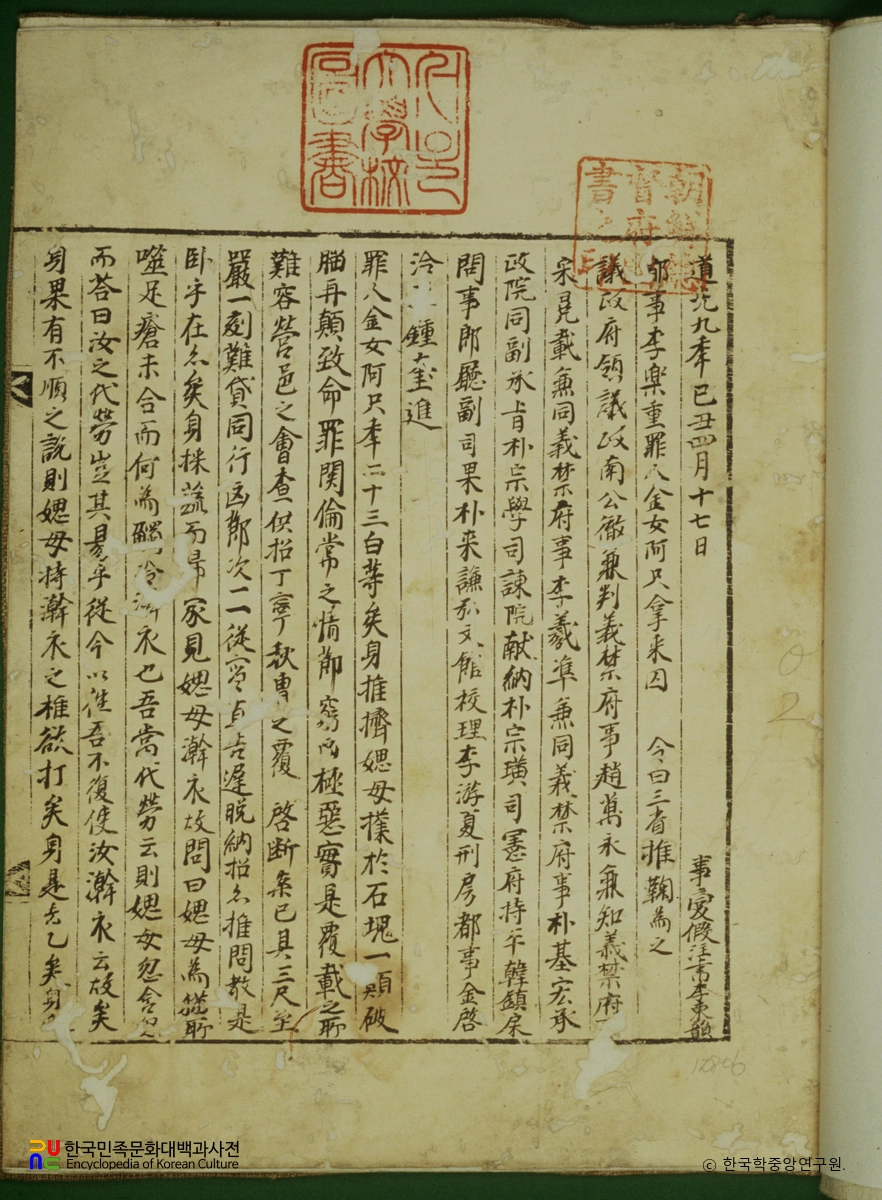 道光九年己丑四月十七日 事變假注書李東
事李樂重罪人金女阿只拿來囚 今日三省推鞫爲之
議政府領議政南公徹兼判義禁府事趙萬永兼知義禁府
采晃載兼同義禁府事李羲準兼同義禁府事朴基宏承
政院同副承旨朴宗學司諫院献納朴宗璜司憲府持平韓鎭戽
問事郎廳副司果朴来謙弘文館校理李游夏刑房都事金啓
泠 鍾奎進
罪人金女阿只年二十三白等矣身推擠媤母撲於石塊一顚破
腦再顚致命罪関倫常之情節窮凶極惡實是覆載之所
難容營邑之會查供招丁寧 之覆 啓断案已具三尺至
嚴一刻難貸同行凶節次一一從實直告遲晩納招亦推問教是
臥乎在亦矣身採蔬而歸家見媤母澣衣故問曰媤母爲 所
噬足瘡未合而何爲觸冷澣衣也吾當代勞云則媤母忽含
而答曰汝之代勞豈其易乎從今以往吾不復使汝澣衣云故矣
身果有不順之說則媤母将澣衣之椎欲打矣身是去乙矣身
朝鮮總督府圖書之印
大學校圖書
한국민족문화대백과사전
Encyclopedia of Korean Culture
© 한국학중앙연구원.